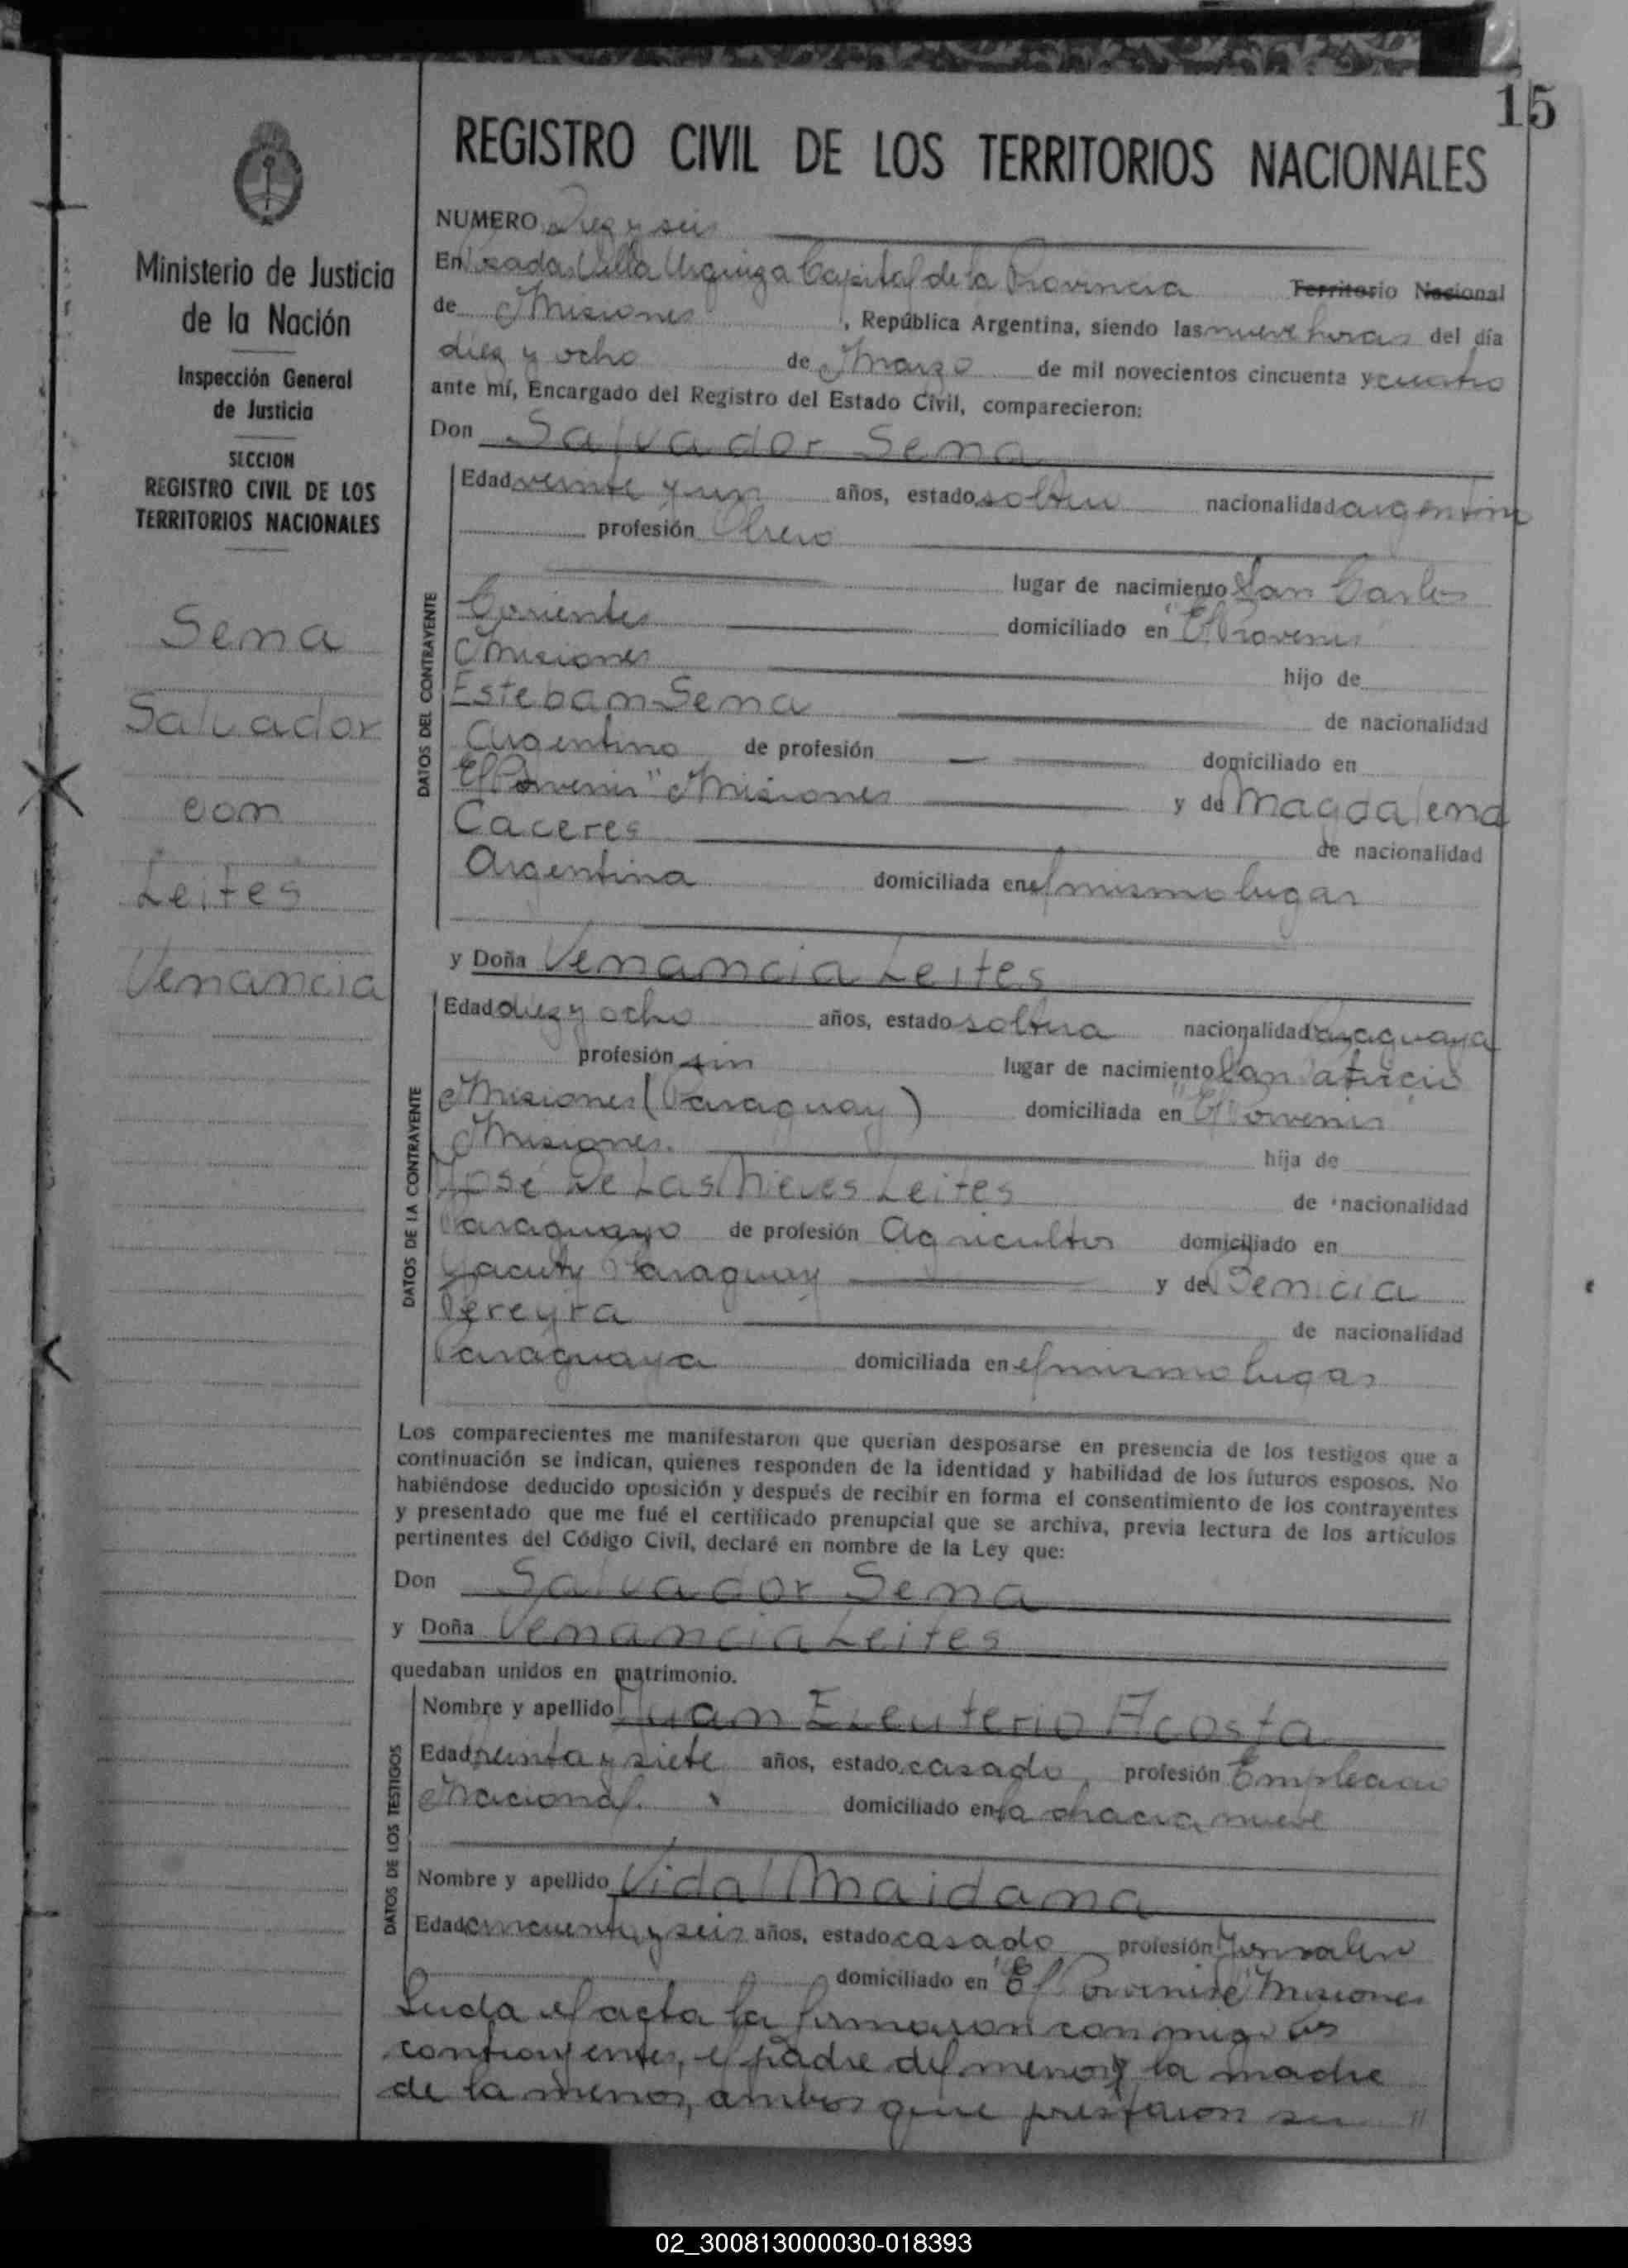 15
REGISTRO CIVIL DE LOS TERRITORIOS NACIONALES
Ministerio de Justicia
de la Nación
Inspección General
de Justicia
SECCION
REGISTRO CIVIL DE LOS
TERRITORIOS NACIONALES
Sena
Salvador
con
Leites
Venancia
NUMERO Diez y seis
En Posadas Villa Urquiza Capital de la Provincia Territorio Nacional
de Misiones, República Argentina, siendo las nueve horas del día
diez y ocho de Marzo de mil novecientos cincuenta y cuatro
ante mí, Encargado del Registro del Estado Civil, comparecieron:
Don Salvador Sena
DATOS DEL CONTRAYENTE
Edad veinte y un años, estado soltero nacionalidad argentino
profesión Obrero
lugar de nacimiento San Carlos
Corrientes domiciliado en "El Porvenir"
Misiones hijo de
Esteban Sena de nacionalidad
Argentino de profesión — domiciliado en
"El Porvenir" Misiones y de Magdalena
Caceres de nacionalidad
Argentina domiciliada en el mismo lugar
y Doña Venancia Leites
DATOS DE LA CONTRAYENTE
Edad diez y ocho años, estado soltera nacionalidad Paraguaya
profesión sin lugar de nacimiento San
Misiones (Paraguay) domiciliada en "El Porvenir"
Misiones. hija de
José De Las Nieves Leites de nacionalidad
Paraguayo de profesión Agricultor domiciliado en
Yacuty Paraguay y de Benicia
Pereyra de nacionalidad
Paraguaya domiciliada en el mismo lugar
Los comparecientes me manifestaron que querían desposarse en presencia de los testigos que a
continuación se indican, quienes responden de la identidad y habilidad de los futuros esposos. No
habiéndose deducido oposición y después de recibir en forma el consentimiento de los contrayentes
y presentado que me fué el certificado prenupcial que se archiva, previa lectura de los artículos
pertinentes del Código Civil, declaré en nombre de la Ley que:
Don Salvador Sena
y Doña Venancia Leites
quedaban unidos en matrimonio.
DATOS DE LOS TESTIGOS
Nombre y apellido Juan Eleuterio Acosta
Edad treinta y siete años, estado casado profesión Empleado
Nacional. domiciliado en la chacra nueve
Nombre y apellido Vidal Maidana
Edad cincuenta y seis años, estado casado profesión Jornalero
domiciliado en "El Porvenir" Misiones
Leida el acta la firmaron conmigo los
contrayentes, el padre del menor y la madre
de la menor, ambos que prestaron su "
02_300813000030-018393